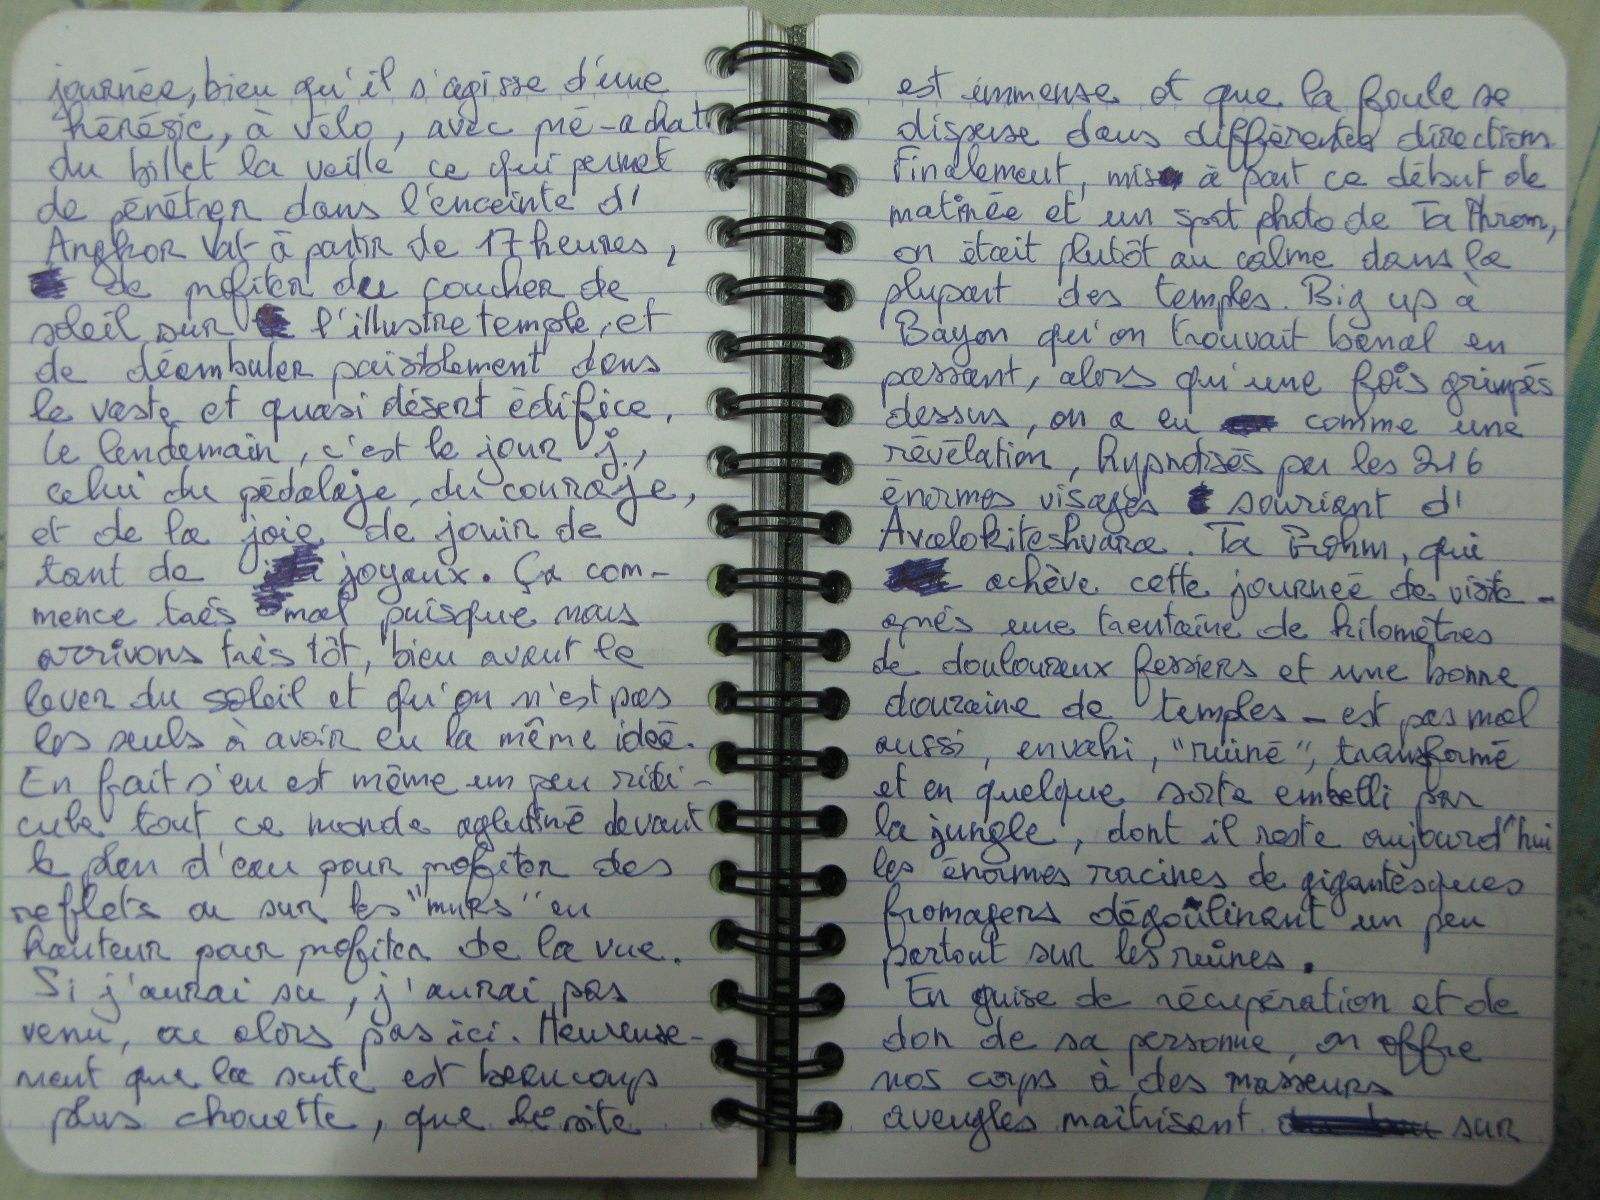 journée, bien qu'il s'agisse d'une
hérésie, à vélo, avec pré-achat
du billet la veille ce qui permet
de pénétrer dans l'enceinte d'
Angkor Vat à partir de 17 heures,
de profiter du coucher de
soleil sur l'illustre temple, et
de déambuler paisiblement dans
le vaste et quasi désert édifice.
Le lendemain, c'est le jour j,
celui du pédalage, du courage,
et de la joie de jouir de
tant de joyaux. Ça com-
mence très mal puisque nous
arrivons très tôt, bien avant le
lever du soleil et qu'on n'est pas
les seuls à avoir eu la même idée.
En fait s'en est même un peu ridi-
cule tout ce monde aglutiné devant
le plan d'eau pour profiter des
reflets ou sur les "murs" en
hauteur pour profiter de la vue.
Si j'aurai su, j'aurai pas
venu, ou alors pas ici. Heureuse-
ment que la suite est beaucoup
plus chouette, que le site
est immense et que la foule se
disperse dans différentes directions
Finalement, mis à part ce début de
matinée et un spot photo de Ta Phrom,
on était plutôt au calme dans la
plupart des temples. Big up à
Bayon qu'on trouvait banal en
passant, alors qu'une fois grimpés
dessus, on a eu comme une
révélation, hypnotisés par les 216
énormes visages souriant d'
Avalokiteshvara. Ta Prohm, qui
achève cette journée de visite -
après une trentaine de kilomètres
de douloureux fessiers et une bonne
douzaine de temples - est pas mal
aussi, envahi, "ruiné", transformé
et en quelque sorte embelli par
la jungle, dont il reste aujourd'hui
les énormes racines de gigantesques
fromagers dégoulinant un peu
partout sur les ruines.
En guise de récupération et de
don de sa personne, on offre
nos corps à des masseurs
aveugles maîtrisant sur